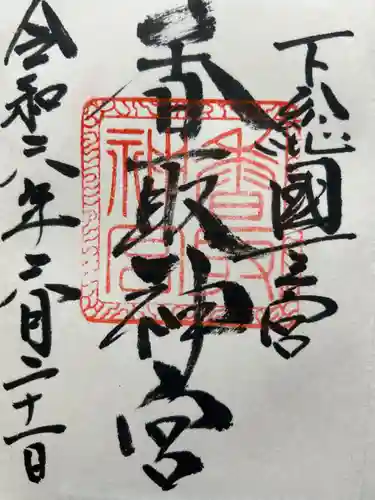 下総國一之宮
香取神宮
令和六年六月二十一日
香取
神宮